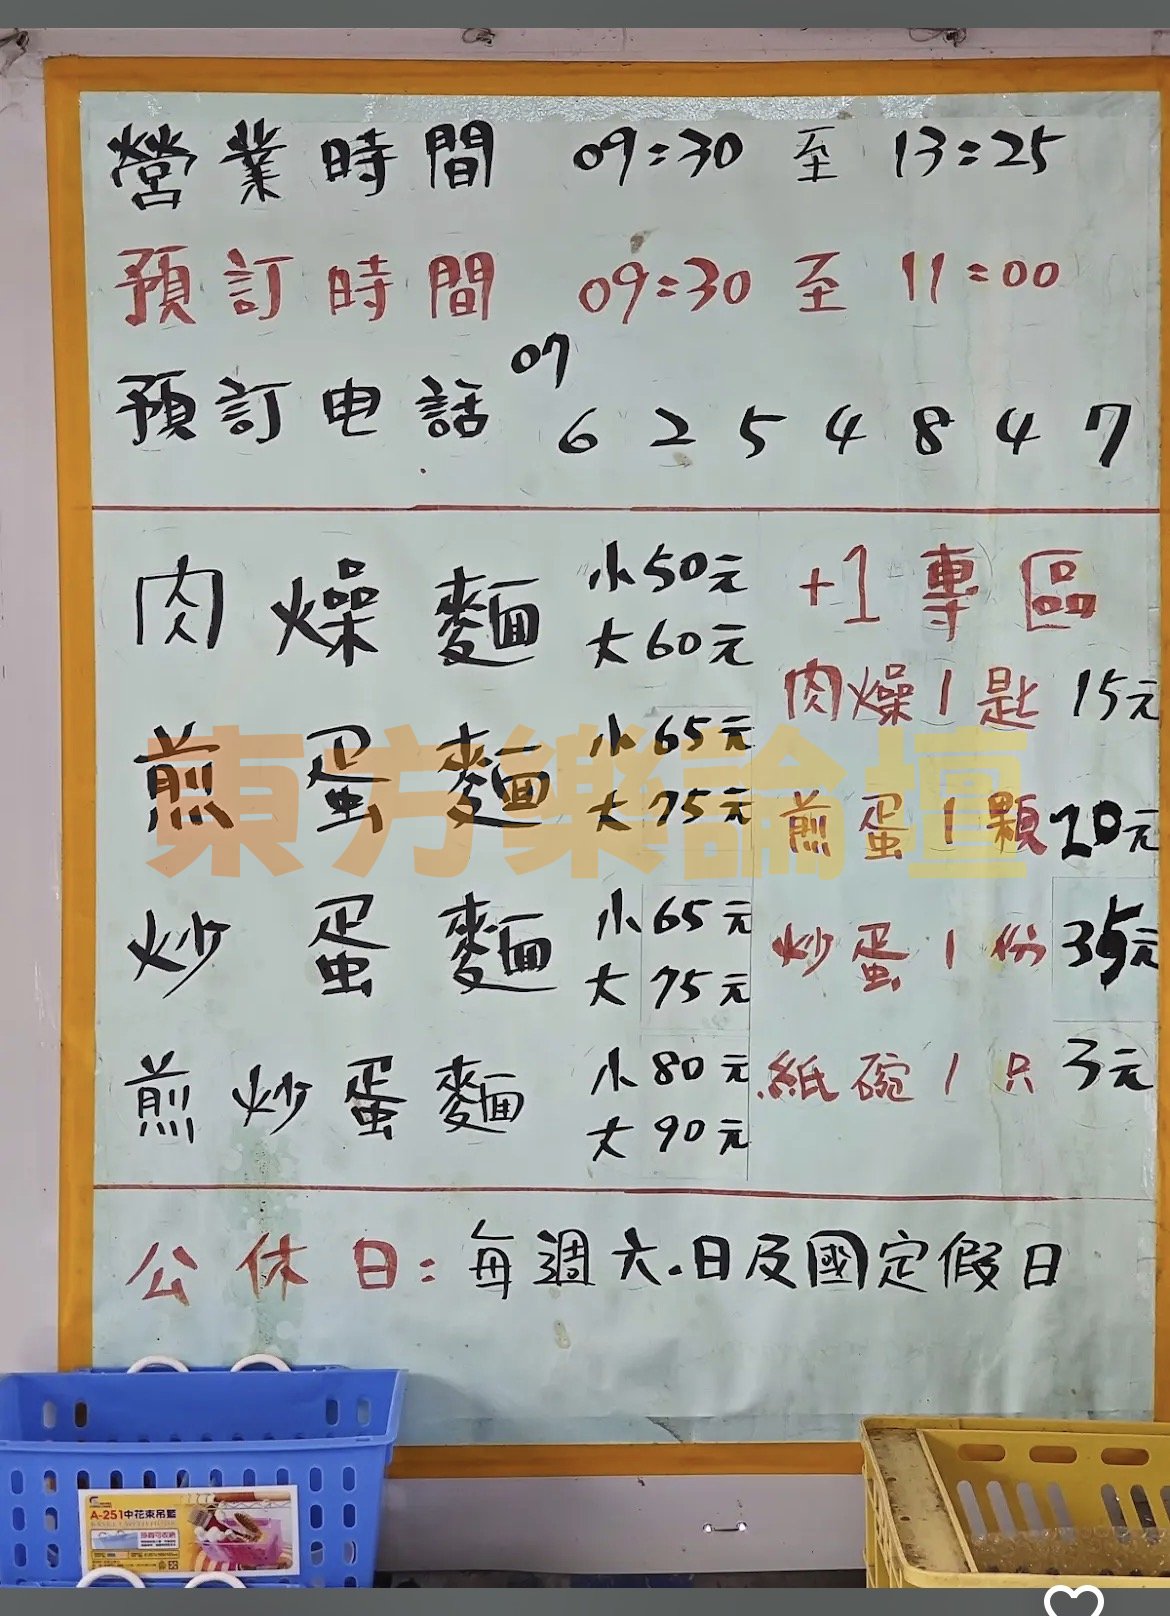 營業時間 09:30 至 13:25
預訂時間 09:30 至 11:00
預訂电話 07 6254847
肉燥麵 小50元
大60元
煎蛋麵 小65元
大75元
炒蛋麵 小65元
大75元
煎炒蛋麵 小80元
大90元
+1專區
肉燥1匙 15元
煎蛋1顆 20元
炒蛋1份 35元
紙碗1只 3元
公休日:每週六.日及國定假日
東方樂論壇
A-251中花束吊籃